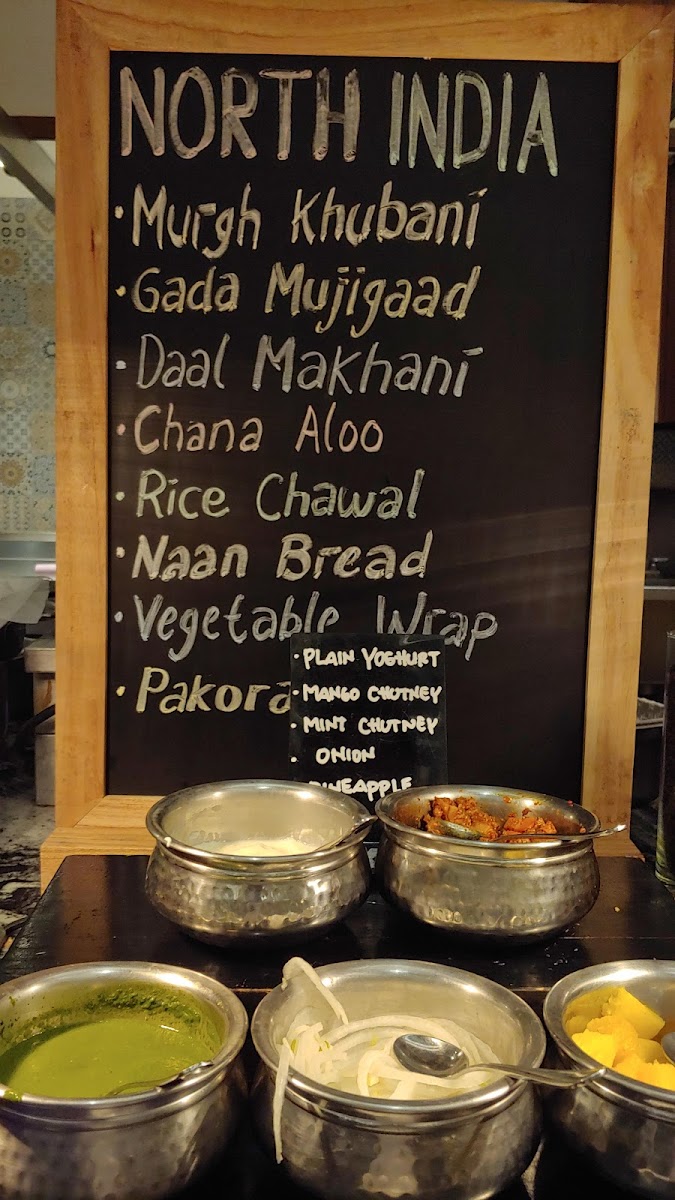 NORTH INDIA
· Murgh Khubani
· Gada Mujigaad
· Daal Makhani
· Chana Aloo
· Rice Chawal
· Naan Bread
· Vegetable Wrap
· Pakora
· PLAIN YOGHURT
· MANGO CHUTNEY
· MINT CHUTNEY
· ONION
PINEAPPLE